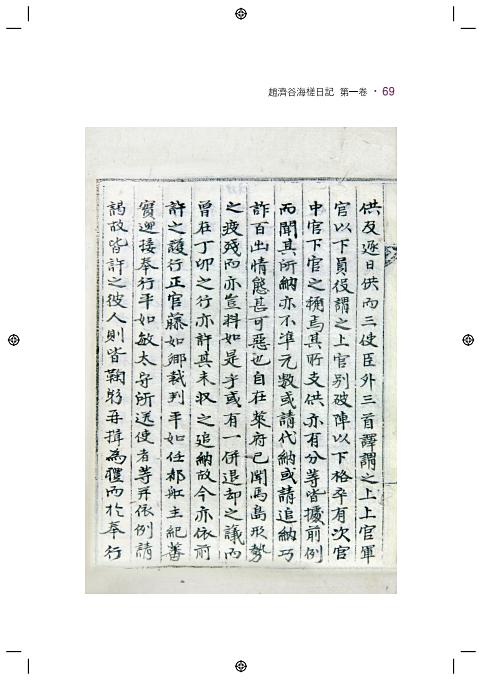 趙濟谷海槎日記 第一卷 · 69
供及逐日供而三使臣外三首譯謂之上上官軍
官以下員役謂之上官別破陣以下格卒有次官
中官下官之稱焉其所支供亦有分等皆據前例
而聞其所納亦不準元數或請代納或請追納巧
詐百出情態甚可惡也自在萊府已聞馬島形勢
之疲殘而亦豈料如是乎或有一倂退却之議而
曾在丁卯之行亦許其未收之追納故今亦依前
許之護行正官藤如鄕裁判平如任都舡主紀蕃
實迎接奉行平如敏太守所送使者等幷依例請
謁故皆許之彼人則皆鞠躬再揖爲禮而於奉行